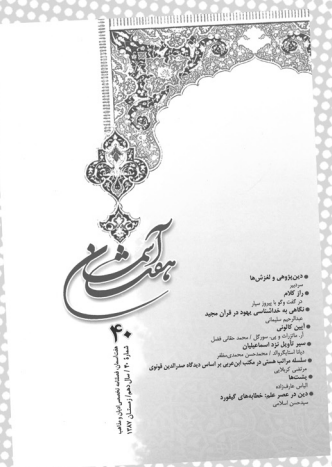 هفت آسمان
۴۰
هفت‌آسمان، فصلنامه تخصصی ادیان و مذاهب
شماره ۴۰ / سال دهم / زمستان ۱۳۸۷
● دین‌پژوهی و لغزش‌ها
سردبیر
● راز کلام
در گفت وگو با پیروز سیار
● نگاهی به خداشناسی یهود در قرآن مجید
عبدالرحیم سلیمانی
● آیین کالونی
آر. ماتزرات و پی. سورگل / محمد حقانی فضل
● سیر تأویل نزد اسماعیلیان
دیانا استایگروالد / محمدحسن محمدی‌مظفر
● سلسله مراتب هستی در مکتب ابن‌عربی بر اساس دیدگاه صدرالدین قونوی
مرتضی کربلایی
● یشت‌ها
الیاس عارف‌زاده
● دین در عصر علم: خطابه‌های گیفورد
سیدحسن اسلامی